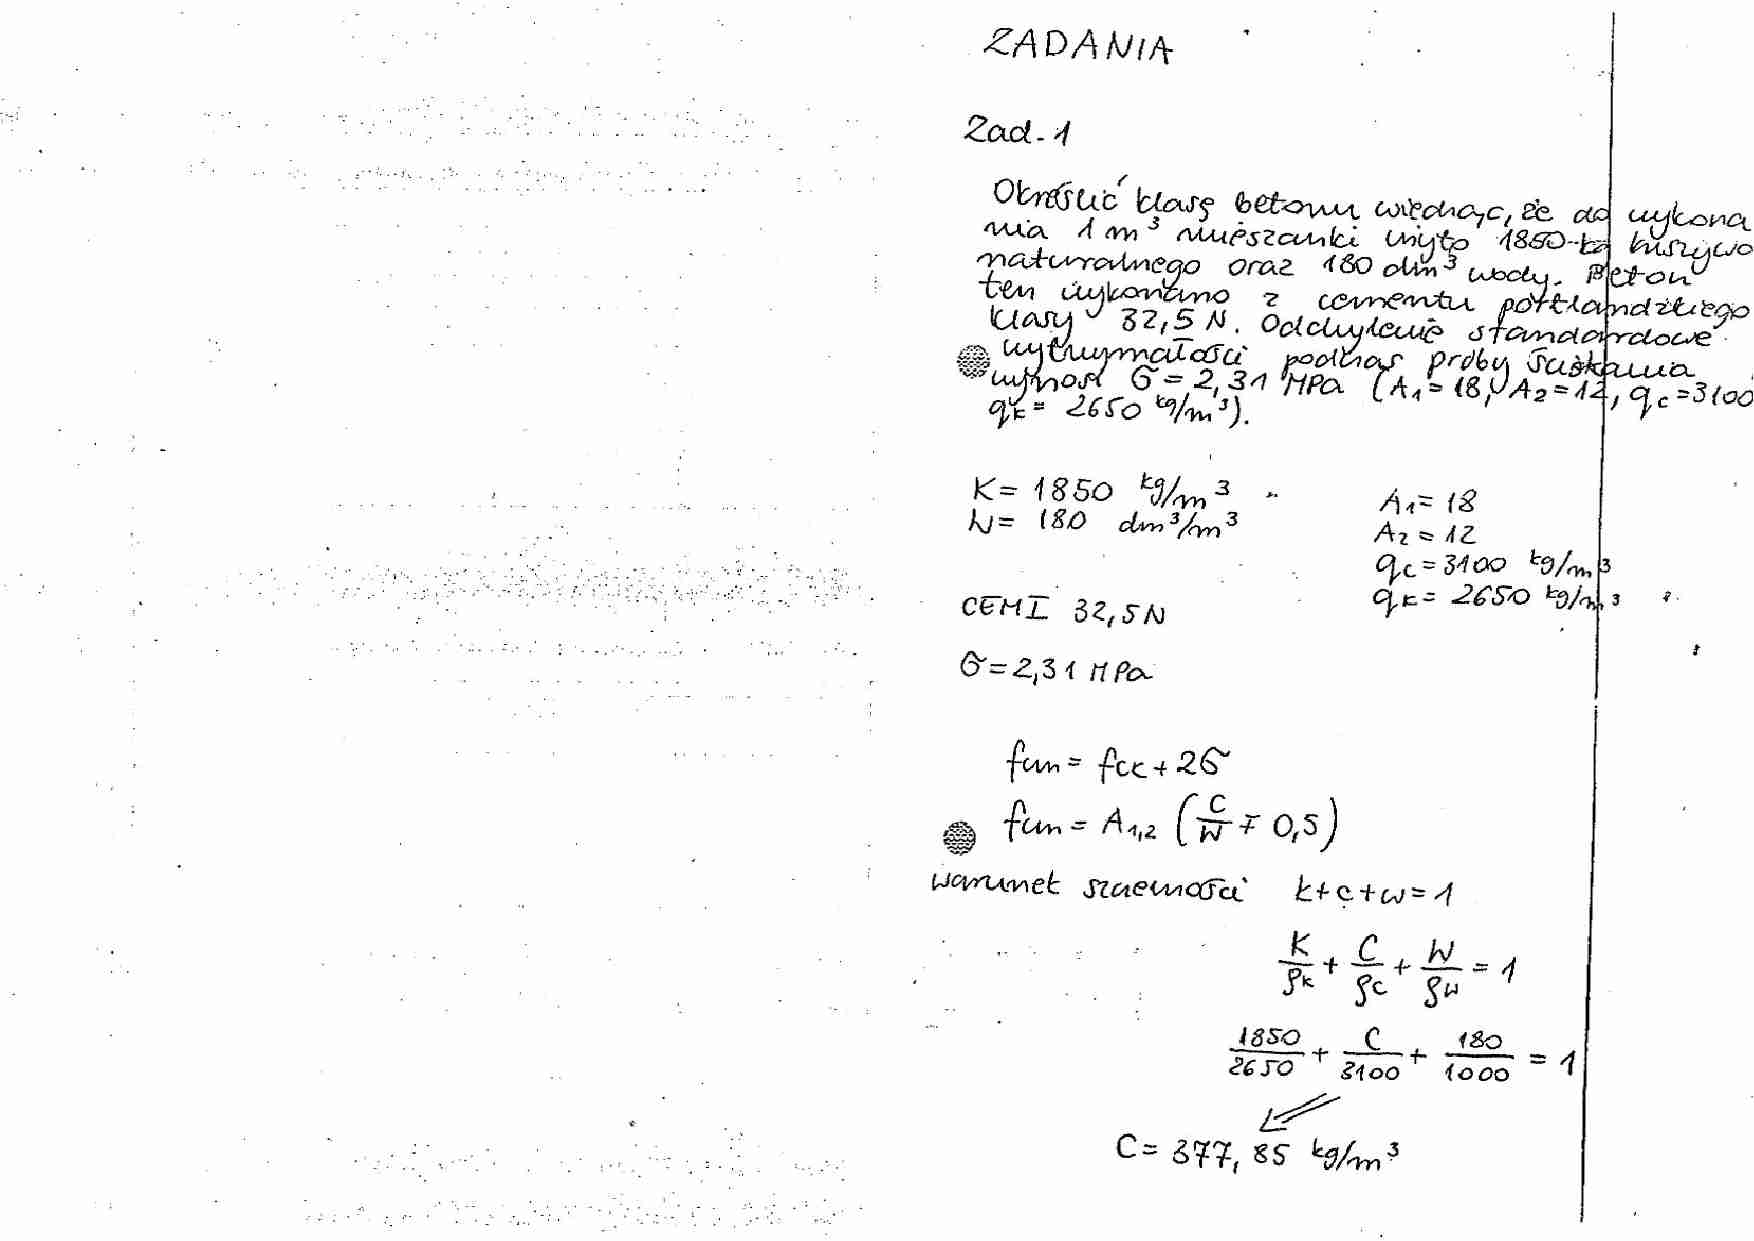 ZADANIA
Zad. 1
Określić klasę betonu wiedząc, że do wykona
nia 1 m³ mieszanki użyto 1850 kg kruszywa
naturalnego oraz 180 dm³ wody. Beton
ten wykonano z cementu portlandzkiego
klasy 32,5 N. Odchylenie standardowe
wytrzymałości podczas próby ściskania
wynosi σ = 2,31 MPa (A₁ = 18, A₂ = 12, qc = 3100
qk = 2650 kg/m³).
K = 1850 kg/m³
W = 180 dm³/m³
A₁ = 18
A₂ = 12
qc = 3100 kg/m³
qk = 2650 kg/m³
CEM I 32,5 N
σ = 2,31 MPa
fcm = fck + 2σ
fcm = A₁,₂ (C/W ∓ 0,5)
warunek szczelności k + c + w = 1
K/ρk + C/ρc + W/ρw = 1
1850/2650 + C/3100 + 180/1000 = 1
C = 377,85 kg/m³